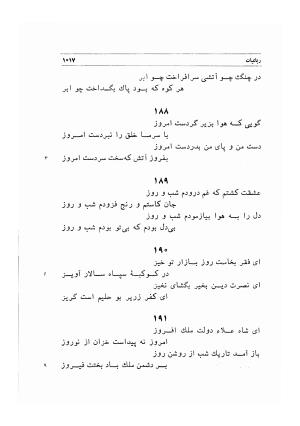 رباعیات ۱۰۱۷
در چنگ چو آتشی سرافراخت چو ابر
هر کوه که بود پاك بگداخت چو ابر
۱۸۸
گویی که هوا بزیر گردست امروز
با سرما خلق را نبردست امروز
دست من و پای من بدردست امروز
۳ بفروز آتش که‌سخت سردست امروز
۱۸۹
عشقت کشتم که غم درودم شب و روز
جان کاستم و رنج فزودم شب و روز
دل را به هوا بیازمودم شب و روز
بی‌دل بودم که بی‌تو بودم شب و روز
۱۹۰
ای فقر بخاست روز بازار تو خیز
۶ در کوکبهٔ سپاه سالار آویز
ای نصرت دیـن بخیر بگشای نخیز
ای کفر زریر بو حلیم است گریز
۱۹۱
ای شاه علاء دولت ملك افـروز
امروز نه پیداست خزان از نوروز
باز آمد تاریك شب از روشن روز
۹ بـر دشمن ملك بـاد بختت فیـروز